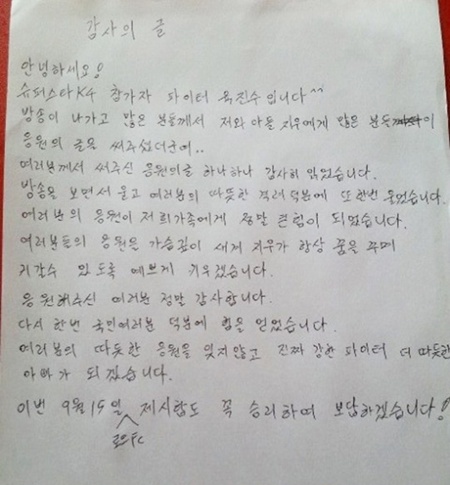 감사의 글
안녕하세요!
슈퍼스타K4 참가자 파이터 육진수입니다^^
방송이 나가고 많은 분들께서 저와 아들 지우에게 많은 분들이
응원의 글을 써주셨더군여..
여러분께서 써주신 응원의글 하나하나 감사히 읽었습니다.
방송을 보면서 울고 여러분의 따뜻한 격려 덕분에 또 한번 울었습니다.
여러분의 응원이 저희가족에게 정말 큰힘이 되었습니다.
여러분들의 응원을 가슴깊이 새겨 지우가 항상 꿈을 꾸며
커갈수 있도록 예쁘게 키우겠습니다.
응원해주신 여러분 정말 감사합니다.
다시 한번 국민여러분 덕분에 힘을 얻었습니다.
여러분의 따듯한 응원을 잊지않고 진짜 강한 파이터 더 따듯한
아빠가 되겠습니다.
이번 9월 15일 제시합도 꼭 승리하여 보답하겠습니다!
로드fc